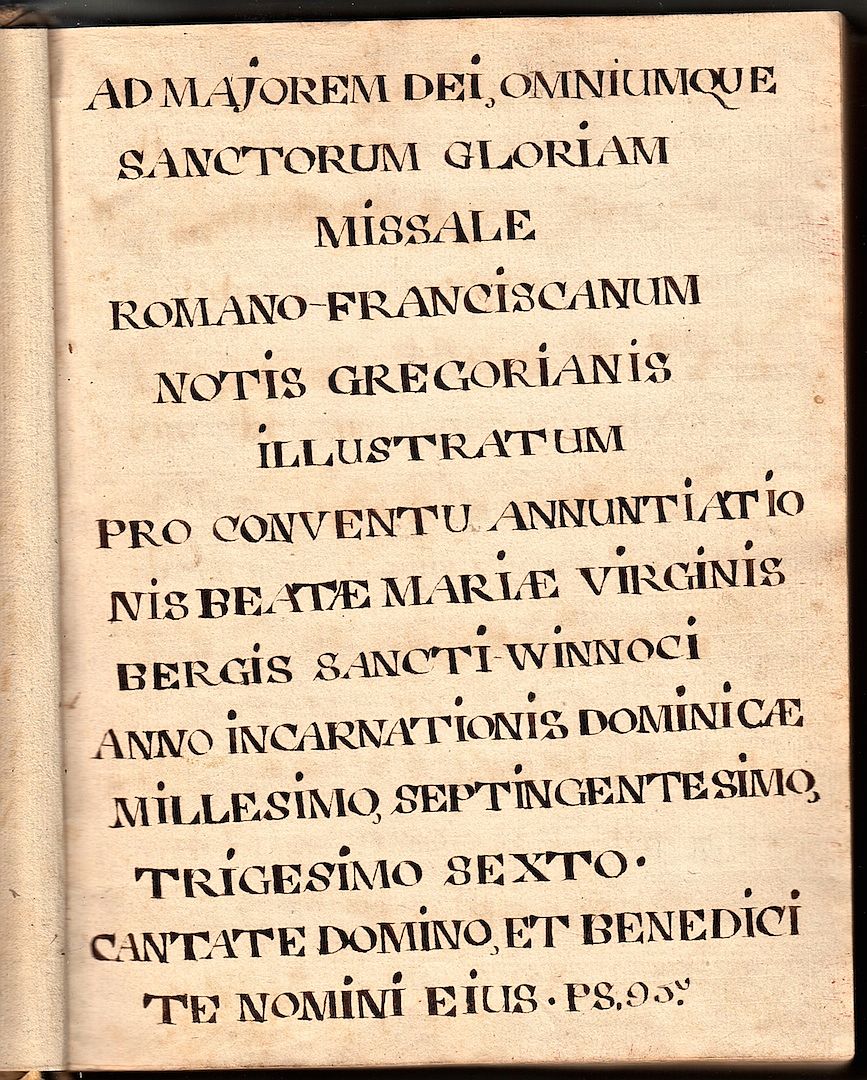 AD MAJOREM DEI, OMNIUMQUE
SANCTORUM GLORIAM
MISSALE
ROMANO-FRANCISCANUM
NOTIS GREGORIANIS
ILLUSTRATUM
PRO CONVENTU ANNUNTIATIO
NIS BEATÆ MARIÆ VIRGINIS
BERGIS SANCTI-WINNOCI
ANNO INCARNATIONIS DOMINICÆ
MILLESIMO, SEPTINGENTESIMO,
TRIGESIMO SEXTO.
CANTATE DOMINO, ET BENEDICI
TE NOMINI EIUS. PS.